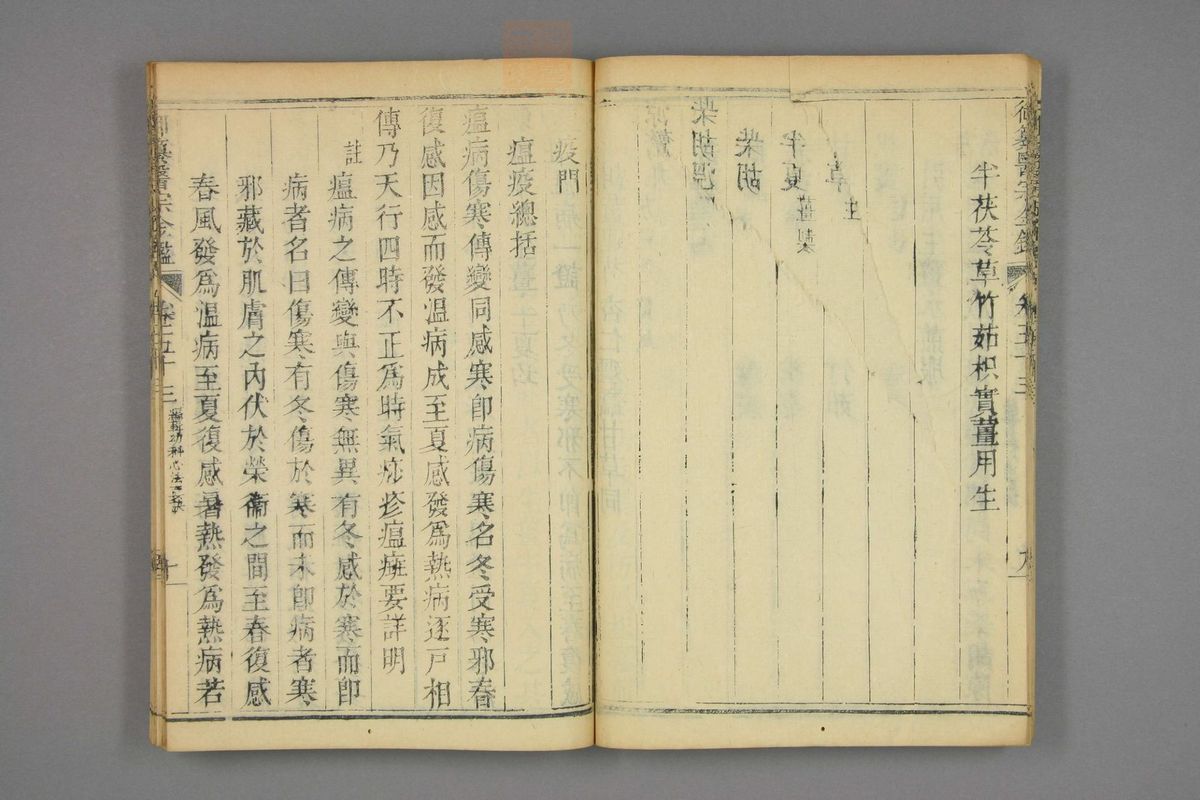 半茯苓草竹茹枳實薑用生
草生
半夏薑製
柴胡
柴胡
疫門
瘟疫總括
瘟病傷寒傳變同感寒即病傷寒名冬受寒邪春
復感因感而發温病成至夏感發爲熱病逐戸相
傳乃天行四時不正爲時氣痧疹瘟㾮要詳明
註瘟病之傳變與傷寒無異有冬感於寒而即
病者名曰傷寒有冬傷於寒而未即病者寒
邪藏於肌膚之内伏於榮衞之間至春復感
春風發爲温病至夏復感暑熱發爲熱病若
御纂醫宗金鑑
卷五十三
編輯幼科心法要訣
十